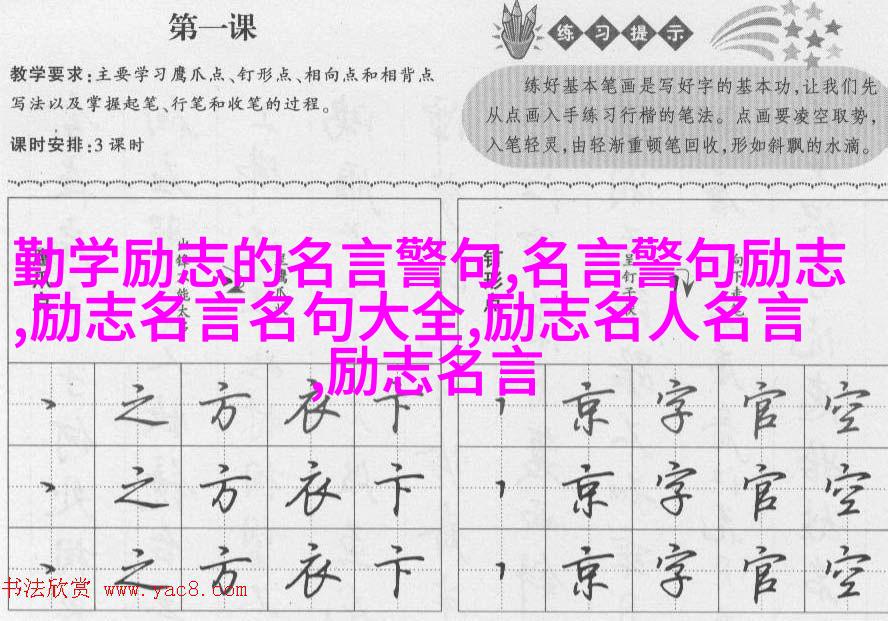 第一课
教学要求:主要学习鹰爪点、钉形点、相向点和相背点
写法以及掌握起笔、行笔和收笔的过程。
课时安排:3课时
练习提示
练好基本笔画是写好字的基本功,让我们先
从点画入手练习行楷的笔法。点画要凌空取势,
入笔轻灵,由轻渐重顿笔回收,形如斜飘的水滴。
勤学励志的名言警句,名言警句励志
,励志名言名句大全,励志名人名言
,励志名言
丶之方衣卞
京字官空
丶之方衣卞
京字官空
丶之方衣卞
京字官空
书法欣赏 www.yac8.com